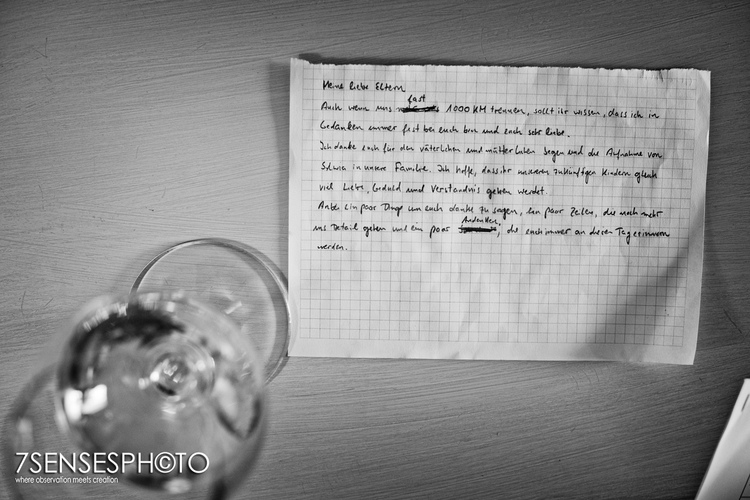 Meine liebe Eltern
Auch wenn uns fast 1000 KM trennen, sollt ihr wissen, dass ich in
Gedanken immer fest bei euch bin und euch sehr liebe.
Ich danke euch für den väterlichen und mütterlichen Segen und die Aufnahme von
Silwia in unsere Familie. Ich hoffe, dass ihr unseren zukünftigen Kindern gleich
viel Liebe, Geduld und Verständnis geben werdet.
Anbei ein paar Dinge um euch danke zu sagen, ein paar Zeilen, die noch mehr
ins Detail gehen und ein paar Andenken, die euch immer an diesen Tag erinnern
werden.
7SENSESPHOTO
where observation meets creation